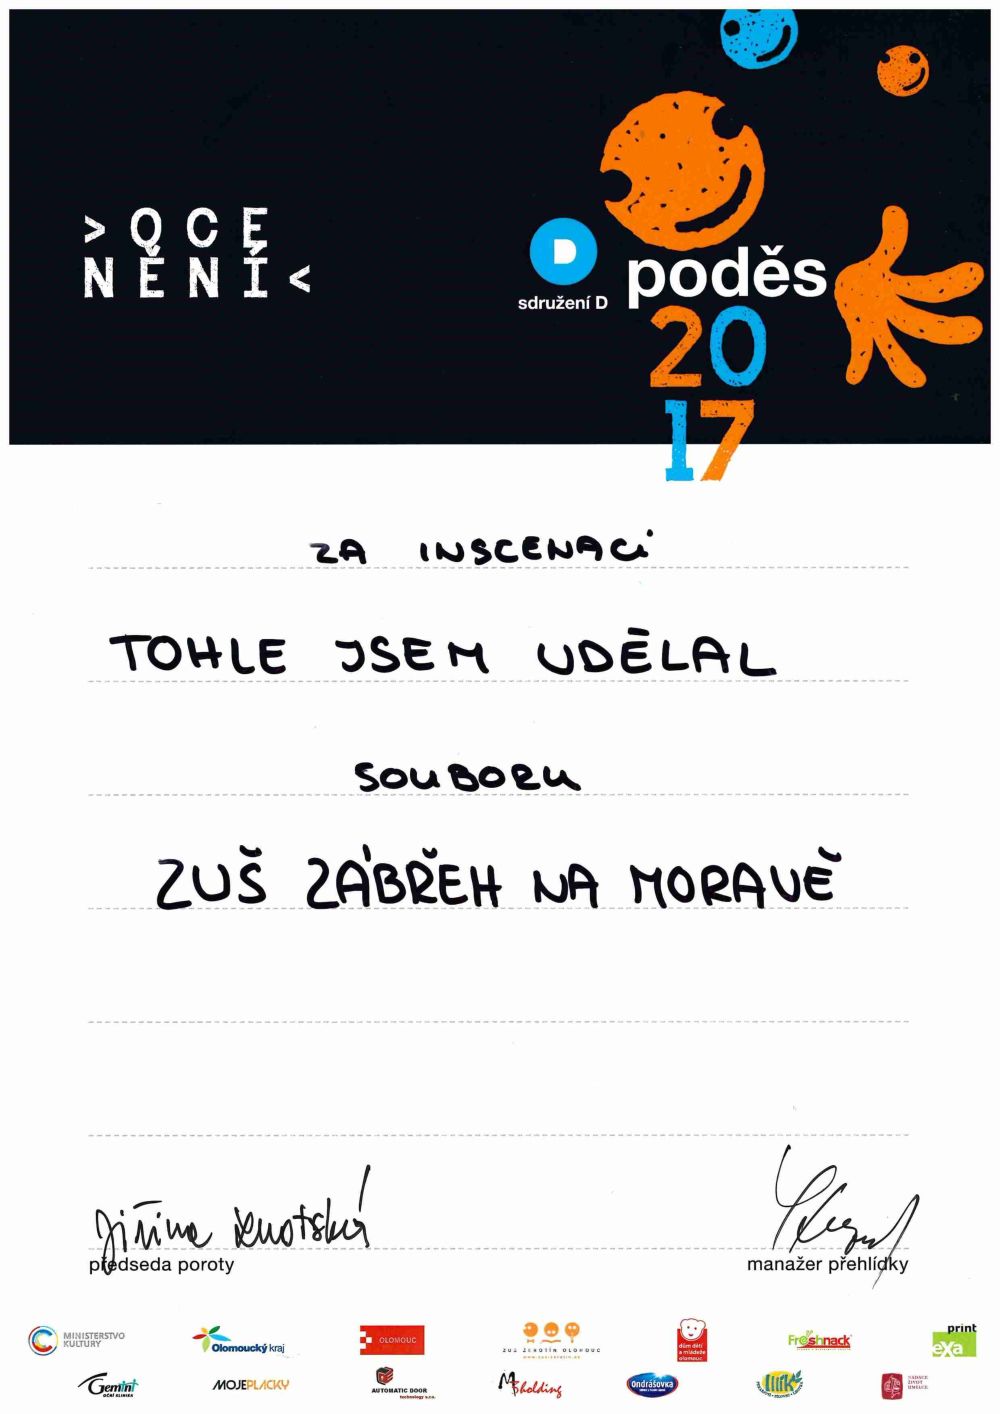 >OCE
NĚNÍ<
sdružení D
poděs
20
17
ZA INSCENACI
TOHLE JSEM UDĚLAL
SOUBORU
ZUŠ ZÁBŘEH NA MORAVĚ
Jiřina
předseda poroty
manažer přehlídky
MINISTERSTVO
KULTURY
Olomoucký kraj
OLOMOUC
ZUŠ ŽEROTÍN OLOMOUC
dům dětí
a mládeže
olomouc
Freshnack
print
exa
Gemini
OČNÍ KLINIKA
MOJEPLACKY
AUTOMATIC DOOR
technology s.r.o.
holding
Ondrášovka
NADACE
ŽIVOT
UMĚLCE